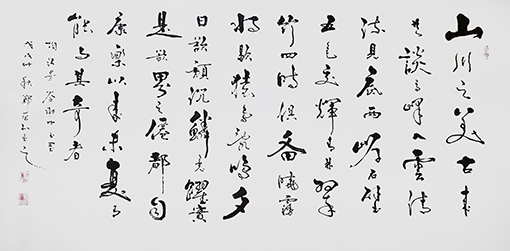 山川之美古来
共談高峰入雲清
流見底两岸石壁
五色交輝青林翠
竹四時俱備曉霧
将歇猿鳥乱鸣夕
日欲頹沉鱗竞躍實
是欲界之僊都自
康樂以来未復有
能与其奇者
陶弘景答謝中書書